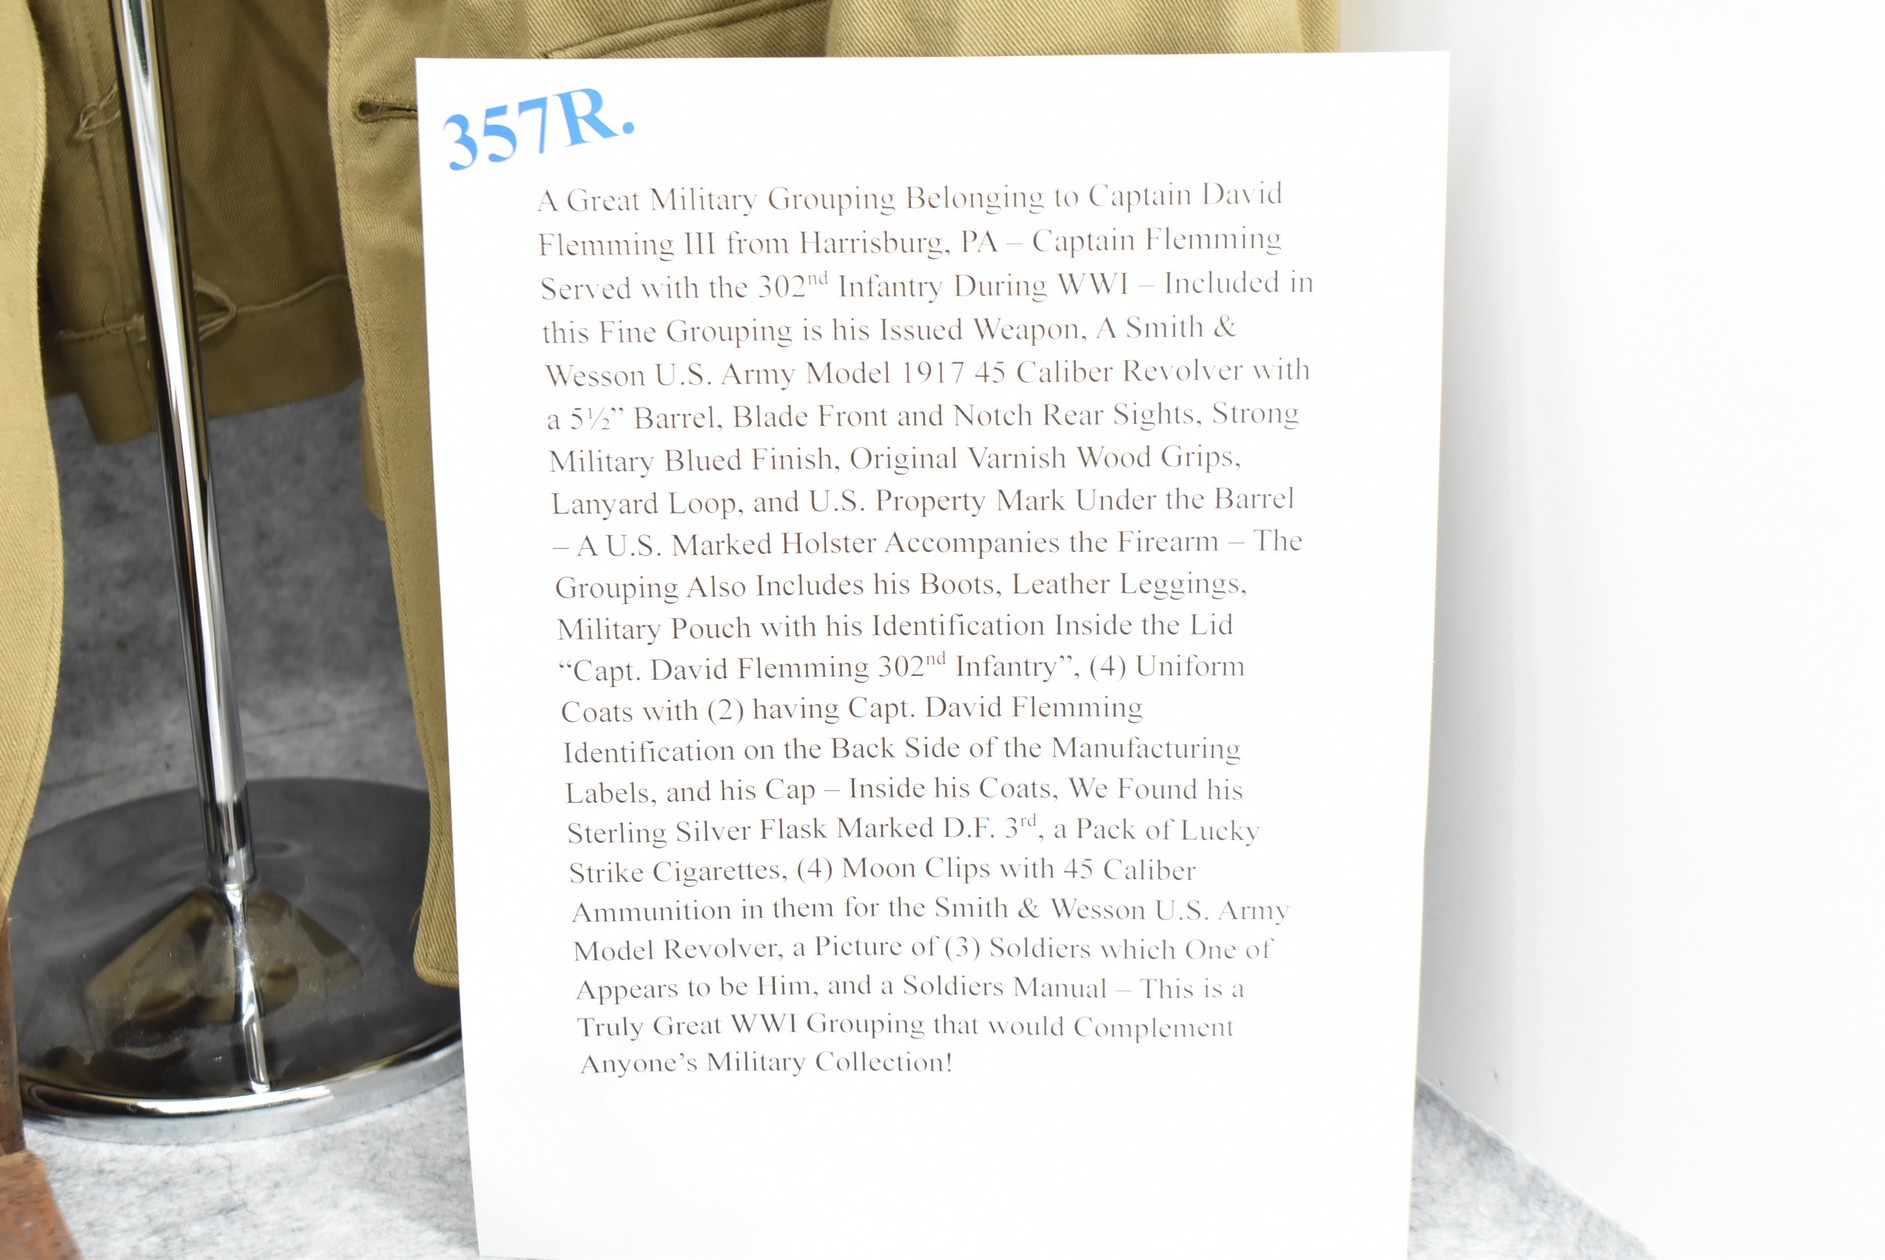 357R.
A Great Military Grouping Belonging to Captain David
Flemming III from Harrisburg, PA – Captain Flemming
Served with the 302nd Infantry During WWI – Included in
this Fine Grouping is his Issued Weapon, A Smith &
Wesson U.S. Army Model 1917 45 Caliber Revolver with
a 5½” Barrel, Blade Front and Notch Rear Sights, Strong
Military Blued Finish, Original Varnish Wood Grips,
Lanyard Loop, and U.S. Property Mark Under the Barrel
– A U.S. Marked Holster Accompanies the Firearm – The
Grouping Also Includes his Boots, Leather Leggings,
Military Pouch with his Identification Inside the Lid
“Capt. David Flemming 302nd Infantry”, (4) Uniform
Coats with (2) having Capt. David Flemming
Identification on the Back Side of the Manufacturing
Labels, and his Cap – Inside his Coats, We Found his
Sterling Silver Flask Marked D.F. 3rd, a Pack of Lucky
Strike Cigarettes, (4) Moon Clips with 45 Caliber
Ammunition in them for the Smith & Wesson U.S. Army
Model Revolver, a Picture of (3) Soldiers which One of
Appears to be Him, and a Soldiers Manual – This is a
Truly Great WWI Grouping that would Complement
Anyone’s Military Collection!